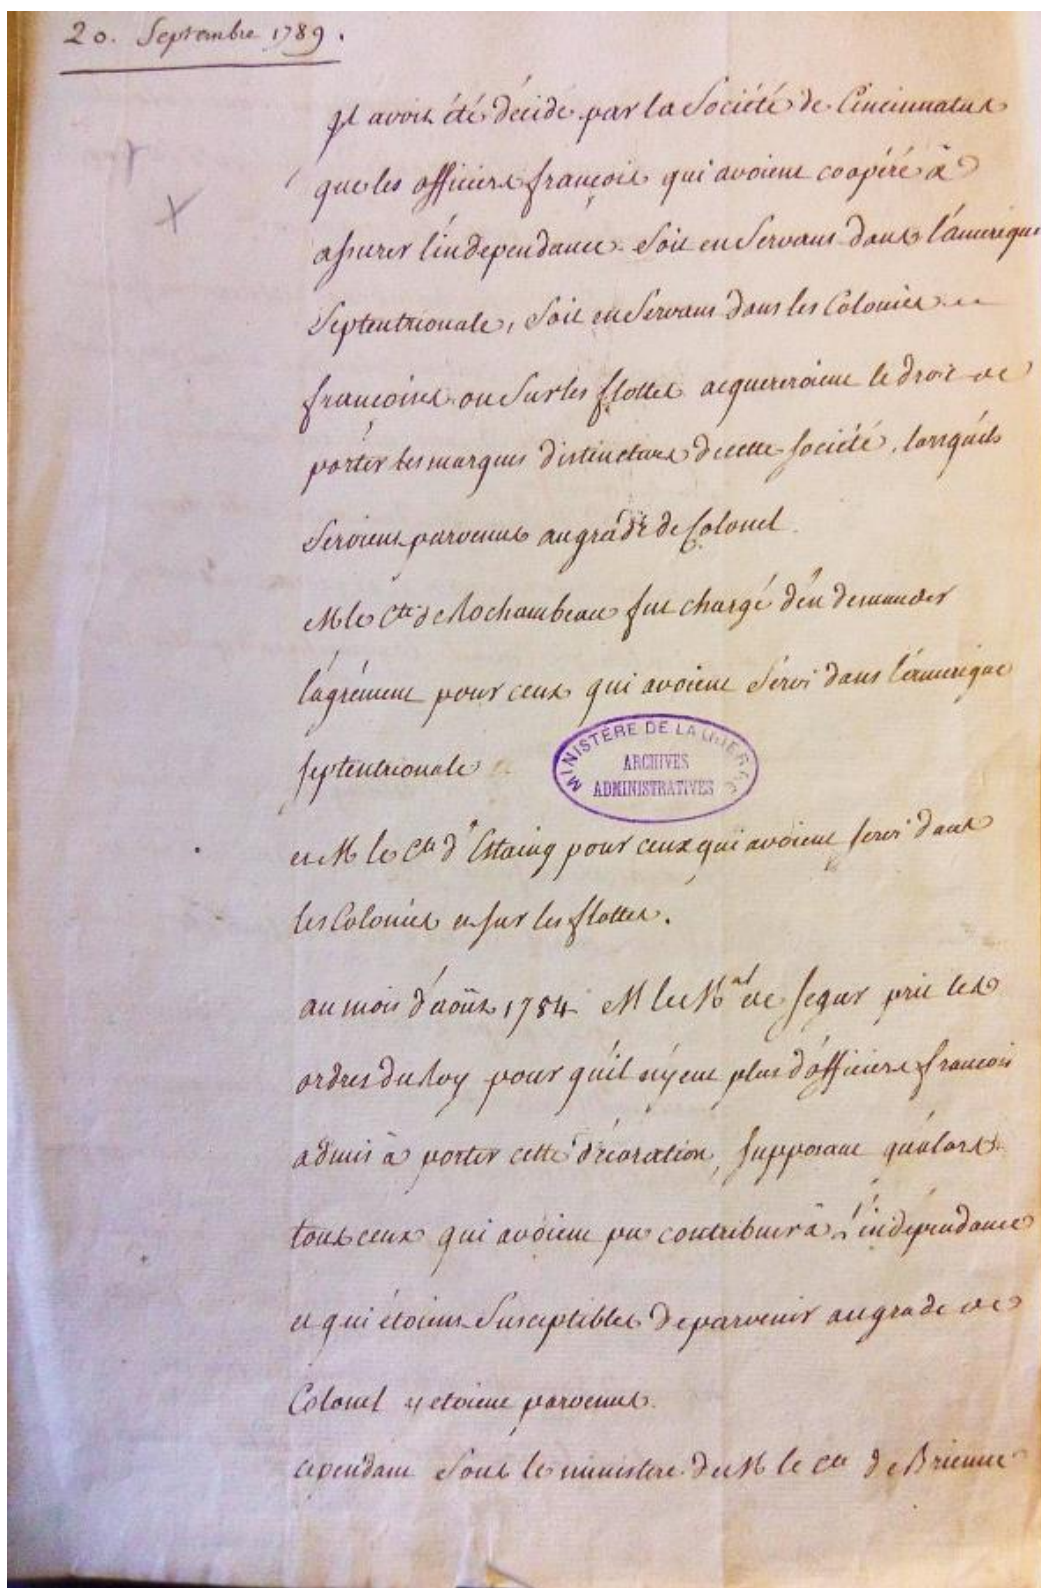 20. Septembre 1789.
Il avoit été décidé par la Société de Cincinnatus
que les officiers françois qui avoient coopéré à
assurer l'independance soit en servant dans l'amérique
Septentrionale, soit en servant dans les Colonies
françoises ou sur les flottes acquereroient le droit de
porter les marques distinctives de cette société, lorsqu'ils
seroient parvenus au grade de Colonel.
M le Cte de Rochambeau fut chargé d'en demander
l'agrément pour ceux qui avoient servi dans l'amerique
septentrionale
MINISTÈRE DE LA GUERRE
ARCHIVES
ADMINISTRATIVES
et M le Cte d'Estaing pour ceux qui avoient servi dans
les Colonies et sur les flottes.
au mois d'août 1784 M le Mal de Segur prit les
ordres du Roy pour qu'il n'y eut plus d'officiers françois
admis à porter cette décoration, supposant qu'alors
tous ceux qui avoient pu contribuer à l'indépendance
et qui étoient susceptibles de parvenir au grade de
Colonel y etoient parvenus.
cependant sous le ministere de M le Cte de Brienne